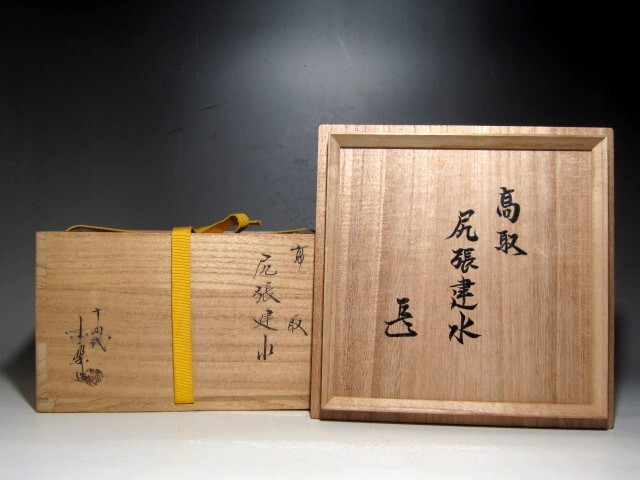 高取
尻張建水
高取
尻張建水
十四代